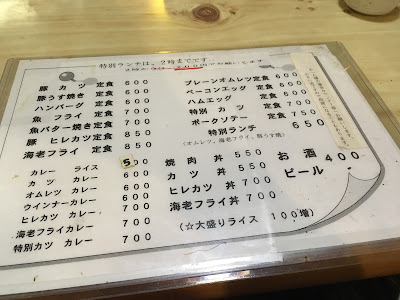 特別ランチは、2時までです
豚カツ 定食 600
豚うす焼き 定食 600
ハンバーグ 定食 600
魚フライ 定食 700
魚バター焼き 定食 700
豚ヒレカツ 定食 850
海老フライ 定食 850
プレーンオムレツ 定食 600
ベーコンエッグ 定食 800
ハムエッグ 定食
特別カツ 定食 700
ポークソテー 定食 750
特別ランチ 650
(オムレツ、海老フライ、豚うす焼)
カレー ライス 500
カツ カレー 600
オムレツ カレー 600
ウインナーカレー 600
ヒレカツ カレー 700
海老フライカレー 700
特別カツ カレー 700
焼肉丼 550
カツ丼 550
ヒレカツ丼 700
海老フライ丼 700
(☆大盛りライス 100増)
お酒 400
ビール